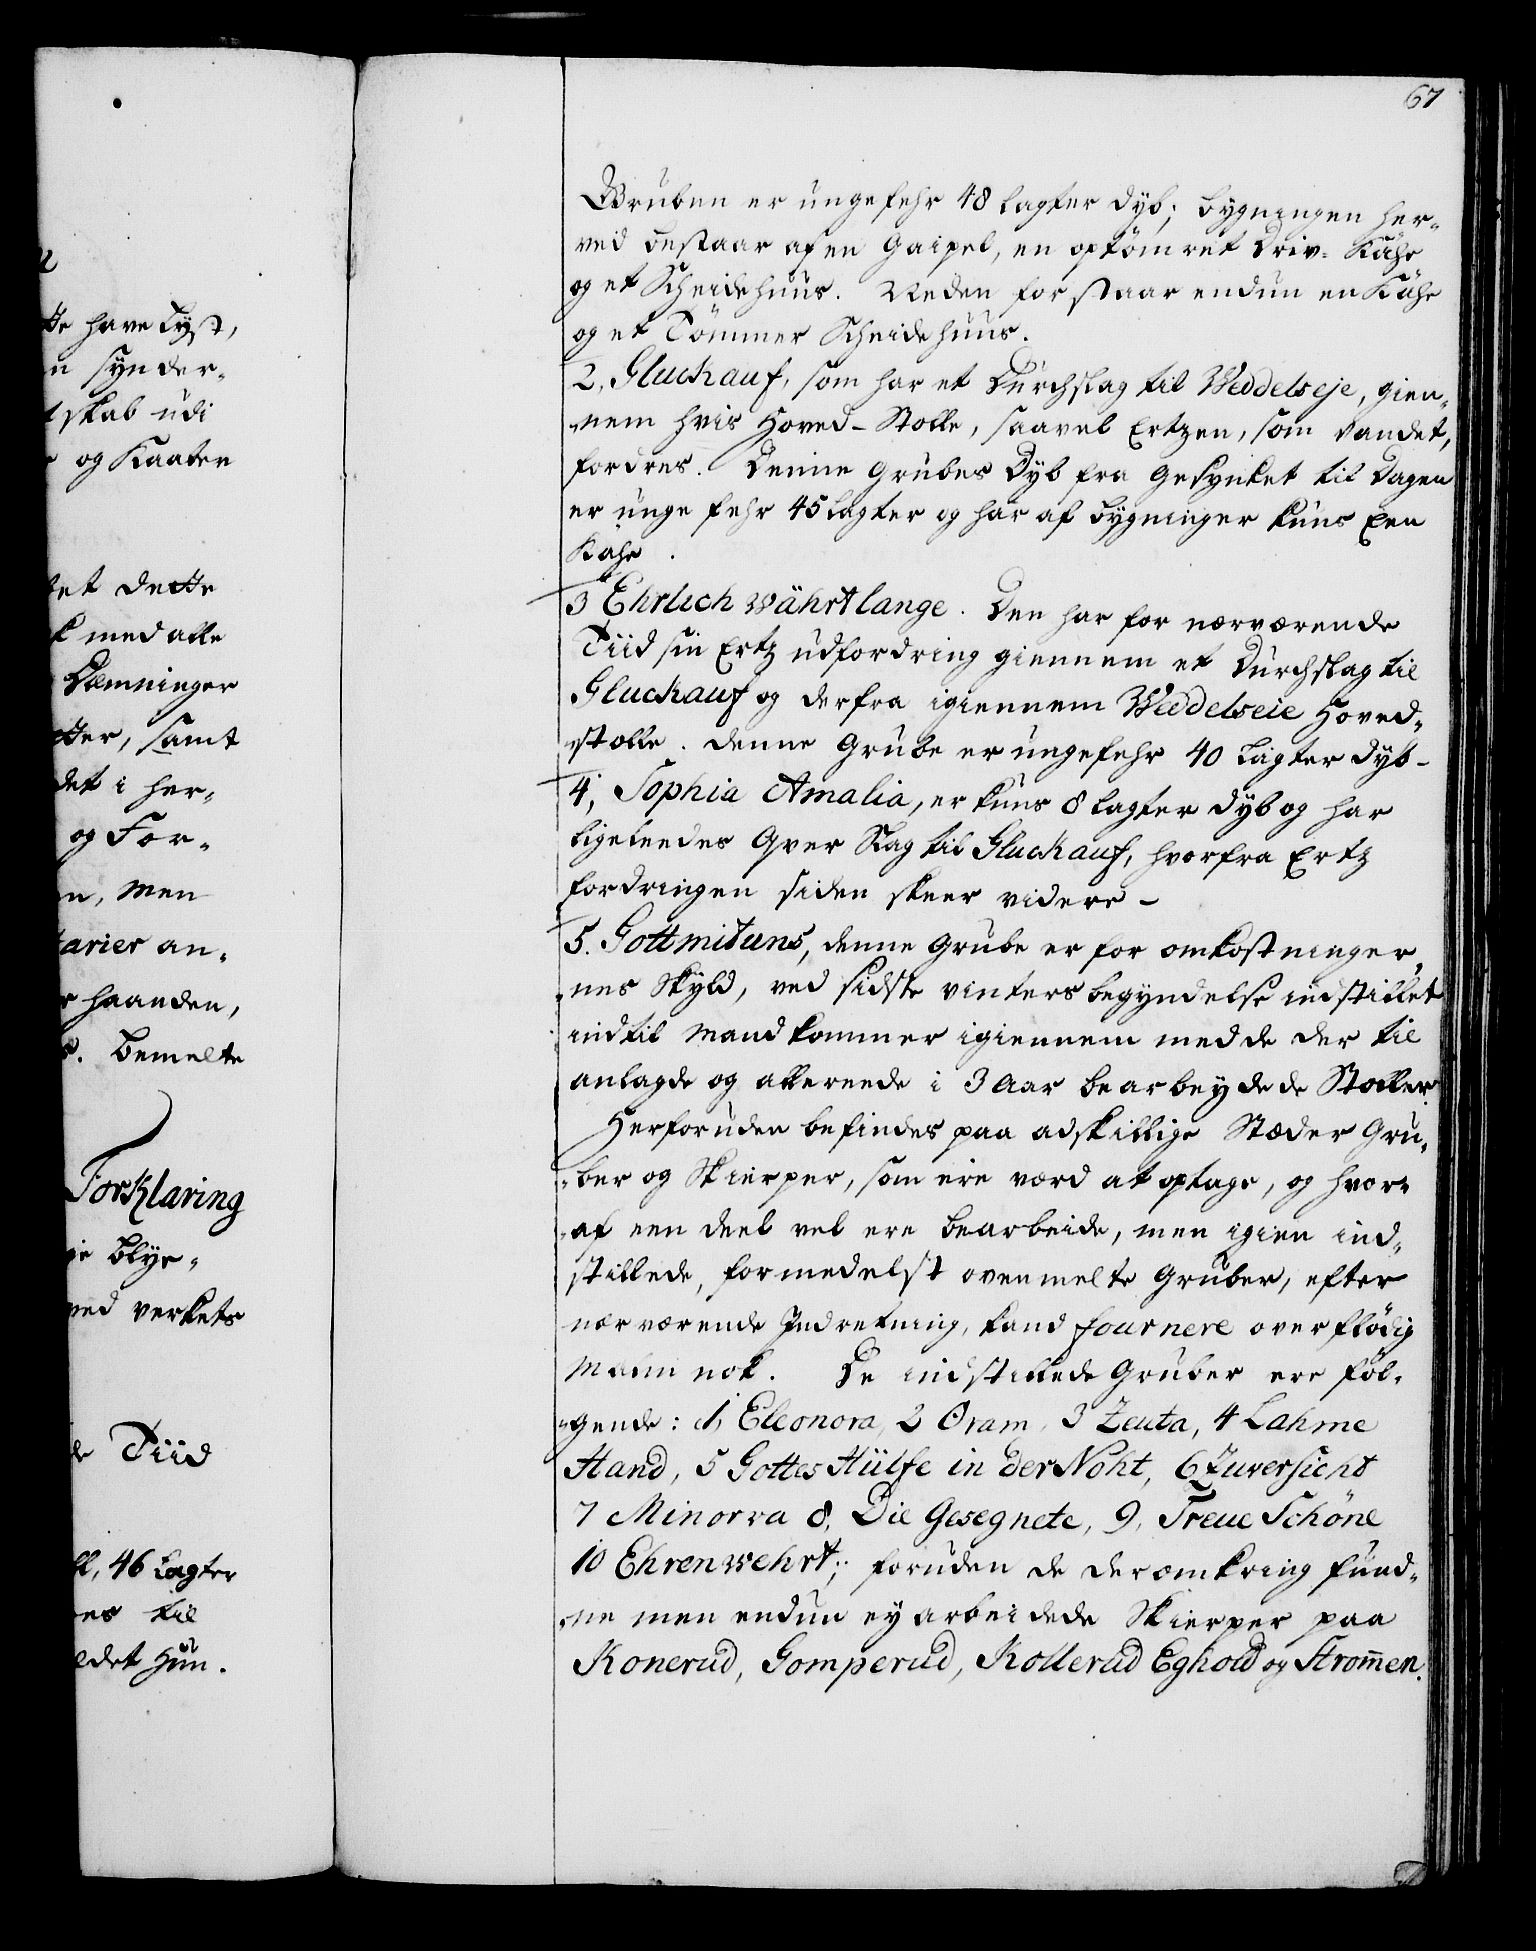 67
Gruben er ungefehr 48 Lagter dyb; bygningen her-
ved bestaar af en Gaipel, en optömret Driv-Kähe
og et Scheidehuus. Neden for staar endnu en Kähe
og et Tömmer Scheidehuus.
2, Gluckauf, som har et Durchslag til Weddelseje, gien-
nem hvis Hoved-Stolle, saavel Ertzen, som Vandet,
fordres. Denne Grubes Dyb fra Gesynket til Dagen
er unge fehr 45 Lagter og har af bygninger kuns Een
Kahe.
3 Ehrlich währt lange. Den har for nærværende
Tiid sin Ertz udfordring giennem et Durchslag til
Gluckauf og derfra igiennem Weddelseie Hoved-
stolle. denne Grube er ungefehr 40 Lagter dyb-
4, Sophia Amalia, er kuns 8 Lagter dyb og har
ligeleedes Qver Slag til Gluckauf, hvorfra Ertz
fordringen siden skeer videre-
5. Gott mit uns, denne Grube er for omkostninger-
nes Skyld, ved sidste vinters begyndelse indstillet
indtil Mand kommer igiennem med de der til
anlagde og allereede i 3 Aar bearbeydede Stoller.
Herforuden befindes paa adskillige Stæder Gru-
ber og Skierper, som ere værd at optage, og hvor-
af een deel vel ere bearbeide, men igien ind-
stillede, formedelst ovenmelte Gruber, efter
nærværende Indretning, kand fournere overflödig
Malm nok. De indstillede Gruber ere föl-
gende: 1, Eleonora, 2 Oram, 3 Zeuta, 4 Lahme
Hand, 5 Gottes Hülfe in der Noht, 6 Zuversicht
7 Minorra 8, Die Gesegnete, 9, Treue Schöne
10 Ehrenwehrt; foruden de deromkring fund-
ne men endnu ey arbeidede Skierper paa
Konerud, Gomperud, Kollerud Eghold og Strommen.
tte have Lyst,
n synder-
tskab udi
og Kaaten
tet dette
k med alle
Dæmninger
tter, samt
det i her-
og For-
n, men
tarier an-
r haanden,
s. bemelte
Forklaring
ge Blye-
ved verkets
de Tiid
ll, 46 Lagter
es til
ldet Hun.